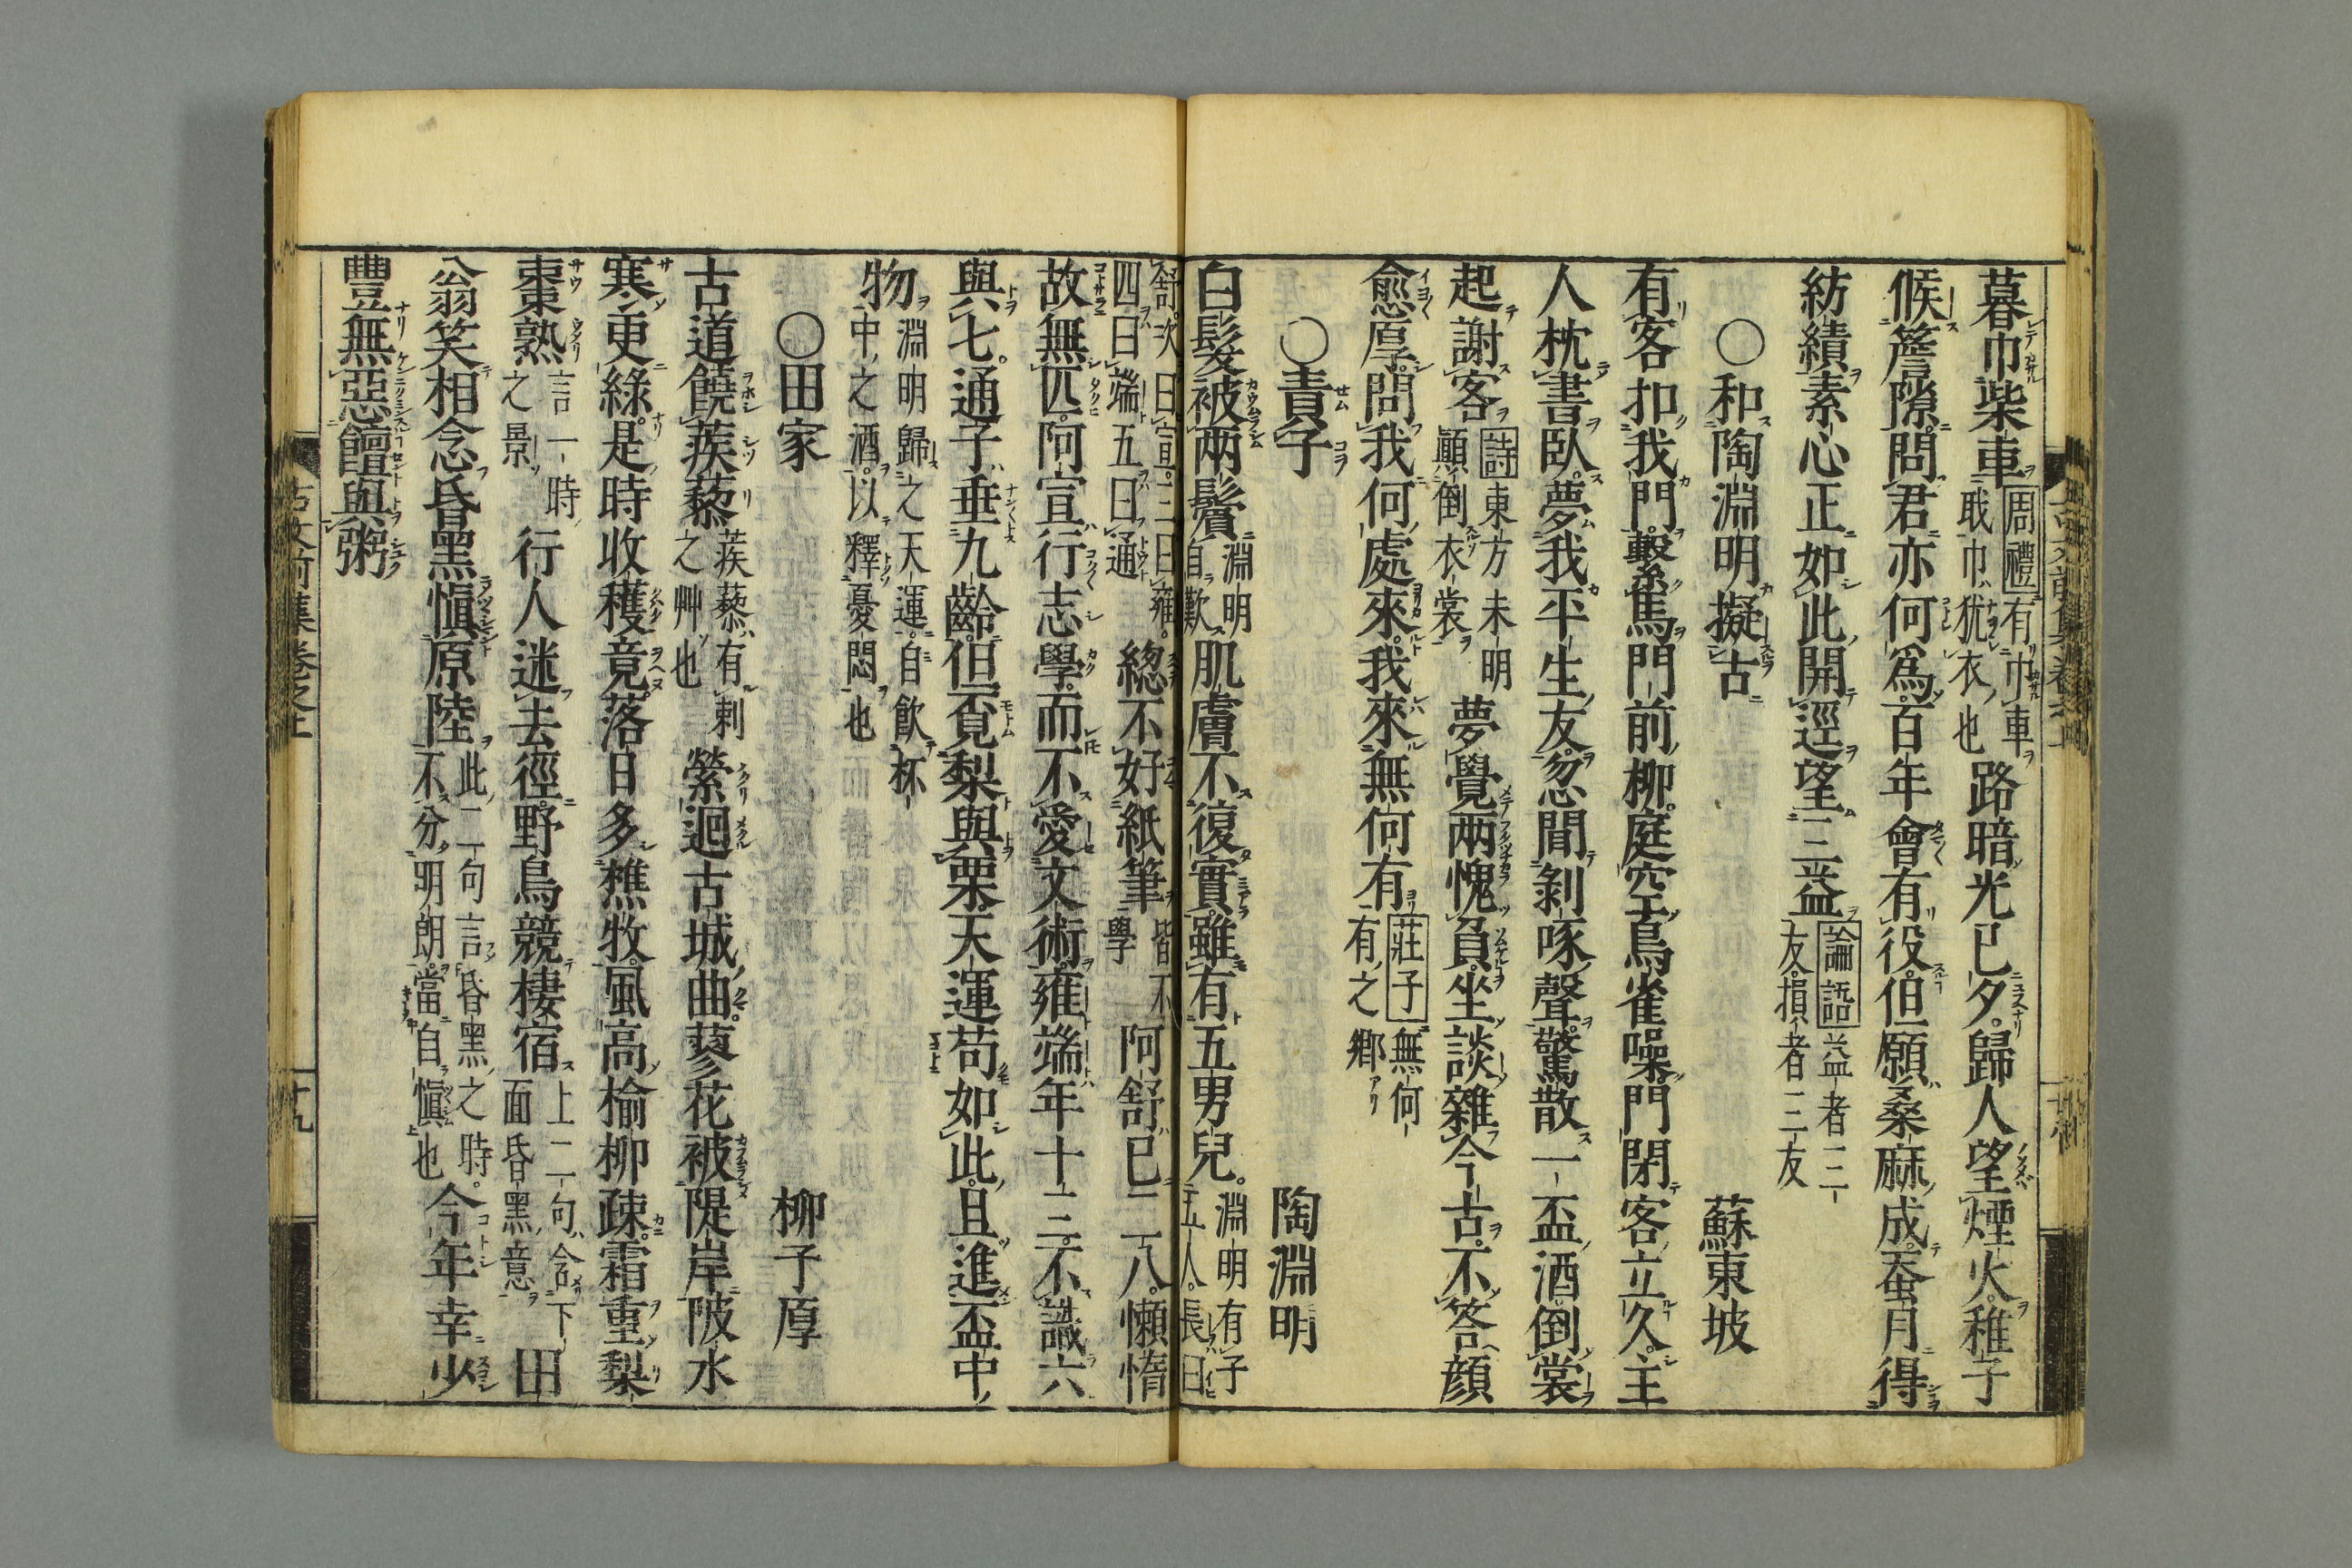 暮巾柴車周禮有巾車戢巾猶衣也路暗光已夕歸人望煙火稚子
候簷隙問君亦何爲百年會有役但願桑麻成蚕月得
紡績素心正如此開逕望三益論語益者三友損者三友
○和陶淵明擬古　蘇東坡
有客扣我門繫馬門前柳庭空鳥雀噪門閉客立久主
人枕書臥夢我平生友忽聞剝啄聲驚散一盃酒倒裳
起謝客詩東方未明顚倒衣裳夢覺兩愧負坐談雜今古不答顔
愈厚問我何處來我來無何有莊子無何有之鄕
○責子　陶淵明
白髮被兩鬢淵明自歎肌膚不復實雖有五男兒淵明有子五人長曰
舒次曰宣三曰雍四曰端五曰通總不好紙筆皆不學阿舒已二八懶惰
故無匹阿宣行志學而不愛文術雍端年十三不識六
與七通子垂九齡但覓梨與栗天運苟如此且進盃中
物淵明歸之天運自飮杯中之酒以釋憂悶也
○田家　柳子厚
古道饒蒺藜蒺藜有刺之艸也縈迴古城曲蓼花被隄岸陂水
寒更綠是時收穫竟落日多樵牧風高楡柳疎霜重梨
棗熟言一時之景行人迷去徑野鳥競棲宿上二句含下面昏黑意田
翁笑相念昏黑愼原陸此二句言昏黑之時不分明朗當自愼也今年幸少
豐無惡饘與粥
古文前集卷之上
十九